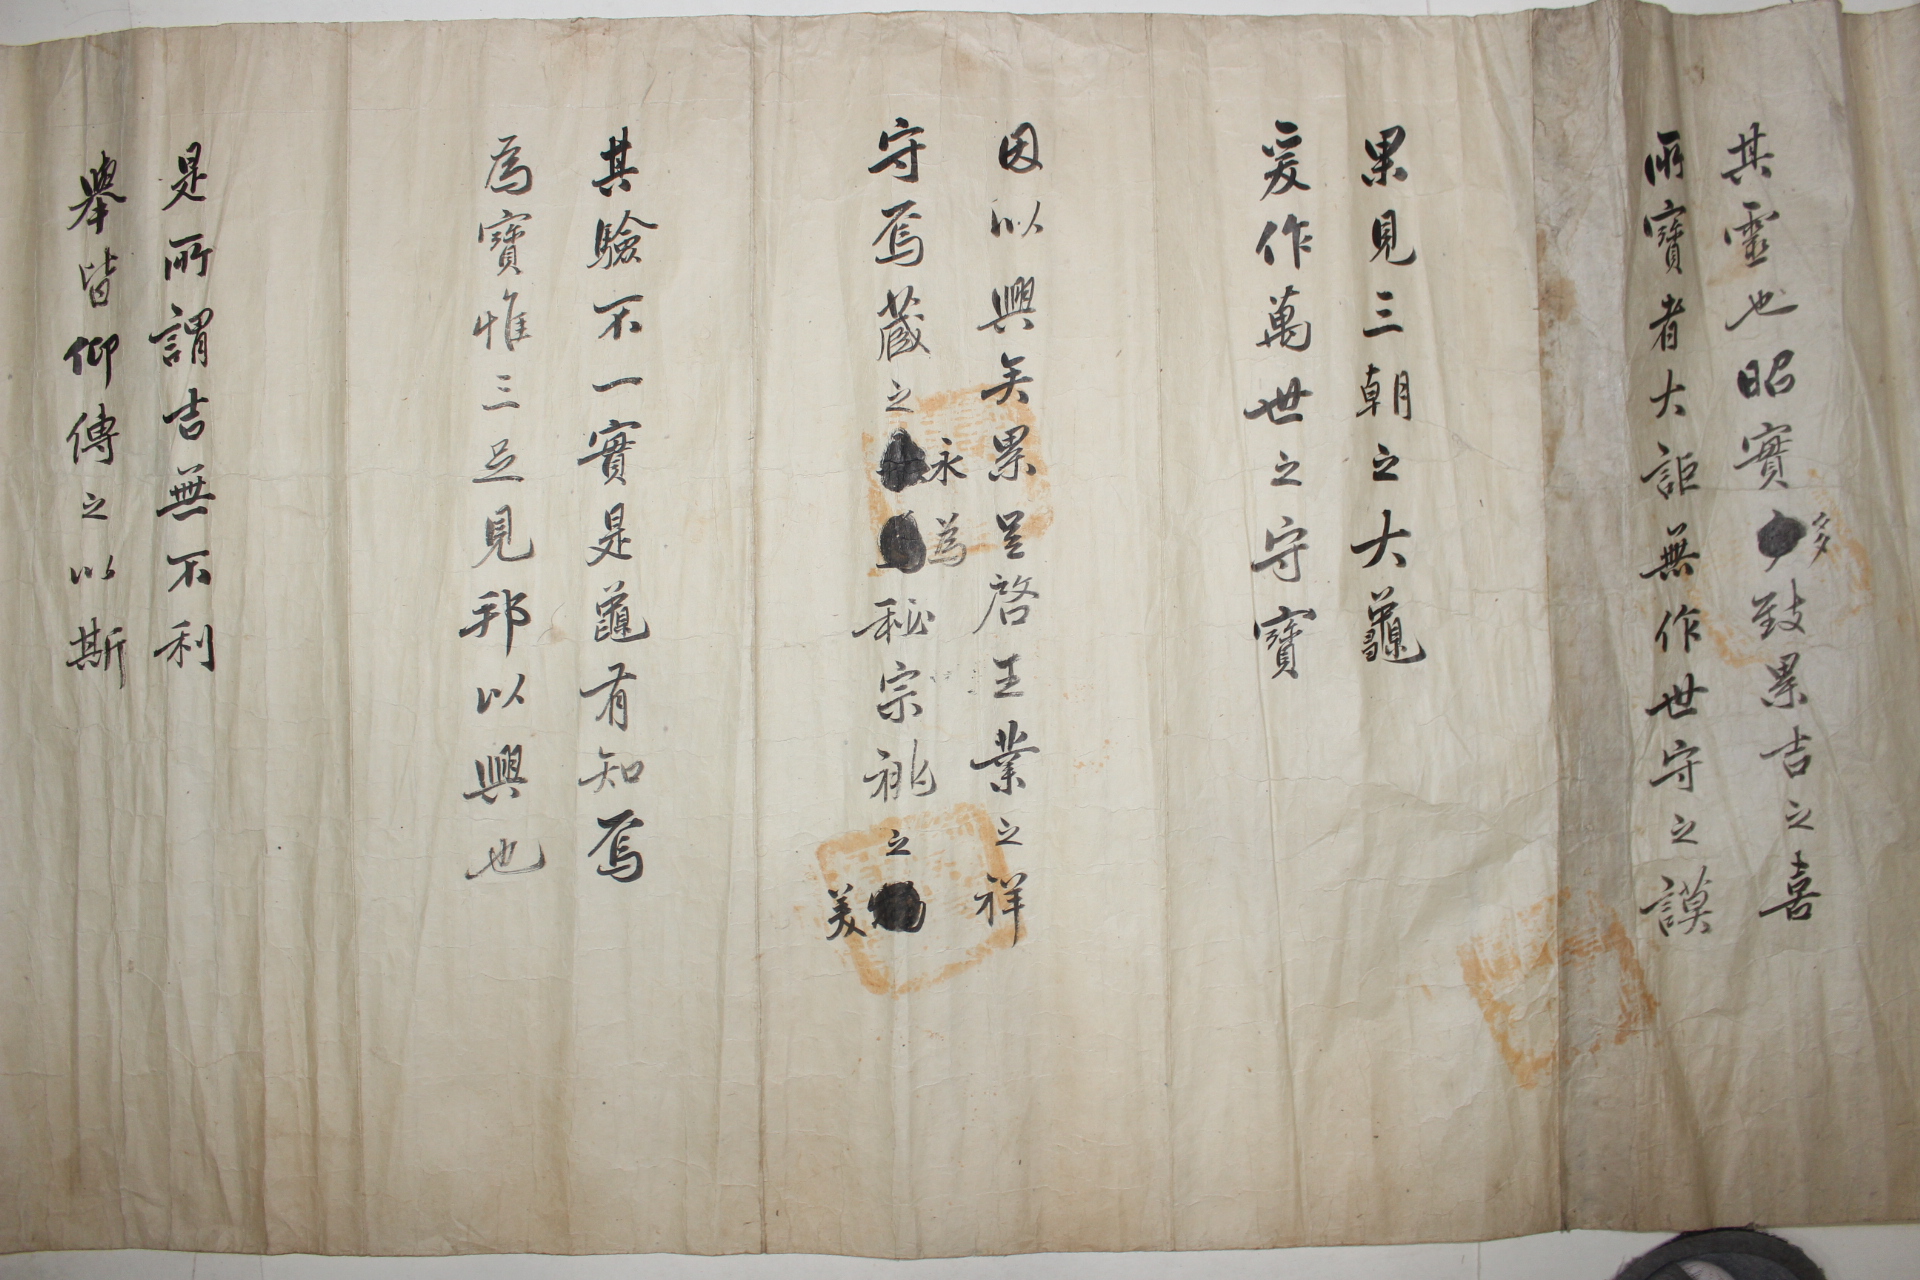 其靈也昭實多致累吉之喜
所寶者大詎無作世守之謨
果見三朝之大龜
爰作萬世之守寶
因以興矣累呈啓王業之祥
守焉蔵之永為秘宗祧之美
其驗不一實是龜有知焉
為寶惟三足見邦以興也
是所謂吉無不利
舉皆仰傳之以斯